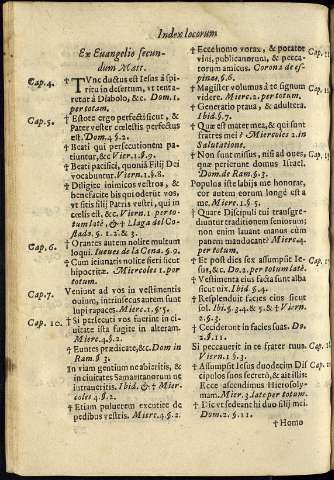 Index locorum
Ex Euangelio secun-
dum Matt.
Cap. 4.
† TVnc ductus est Iesus à spi-
ritu in desertum, vt tenta-
retur à Diabolo, &c. Dom. 1.
per totam.
Cap. 5.
† Estote ergo perfecti sicut, &
Pater vester cœlestis perfectus
est. Dom. 4. §. 2.
† Beati qui persecutionem pa-
tiuntur, &c. Vier. 1. §. 9.
† Beati pacifici, quoniã Filij Dei
vocabuntur. Viern. 1. §. 8.
† Diligite inimicos vestros, &
benefacite his qui oderũt vos,
vt sitis filij Patris vestri, qui in
cœlis est, &c. Viern. 1. per to-
tum latè, & † Llaga del Co-
stado. §. 1. 2. & 3.
Cap. 6.
† Orantes autem nolite multum
loqui. Iueues de la Cena. §. 9.
† Cum ieiunatis nolite fieri sicut
hipocritæ. Miercoles 1. por
totum.
Cap. 7.
Veniunt ad vos in vestimentis
ouium, intrinsecus autem sunt
lupi rapaces. Mierc. 1. §. 5.
Cap. 10.
† Si persecuti vos fuerint in ci-
uitate ista fugite in alteram.
Mierc. 4. §. 2.
† Euntes prædicate, &c. Dom in
Ram. §. 3.
In viam gentium ne abieritis, &
in ciuitates Samaritanorum ne
intraueritis. Ibid. & † Mier-
coles 4. §. 2.
† Etiam puluerem excutite de
pedibus vestris. Mierc. 4. §. 2.
† Ecce homo vorax, & potator
vini, publicanorum, & pecca-
torum amicus. Corona de es-
pinas, §. 6.
† Magister volumus à te signum
videre. Mierc. 2. per totum.
† Generatio praua, & adultera.
Ibid. §. 7.
† Quæ est mater mea, & qui sunt
fratres mei? Miercoles 2. in
Salutatione.
† Non sum missus, nisi ad oues,
quæ perierunt domus Israel.
Dom. de Ram. §. 3.
Populus iste labijs me honorat,
cor autem eorum longè est a
me. Mierc. 1. §. 5.
† Quare Discipuli tui transgre-
diuntur traditionem seniorum;
non enim lauant manus cùm
panem manducant? Mierc. 4.
per totum.
† Et post dies sex assumpsit Ie-
sus, &c. Do. 2. per totum latè.
† Vestimenta eius facta sunt alba
sicut nix. Ibid. §. 4.
† Resplenduit facies eius sicut
sol. Ibi. §. 3. 4. & 5. & † Viern.
2. §. 3.
† Ceciderunt in facies suas. Do.
2. §. 11.
Si peccauerit in te frater tuus.
Viern. 1. §. 3.
† Assumpsit Iesus duodecim Dis-
cipulos suos secretò, & ait illis:
Ecce ascendimus Hierosoly-
mam. Mier. 3. late per totum.
† Dic vt sedeant hi duo filij mei.
Dom. 2. §. 11.
† Homo